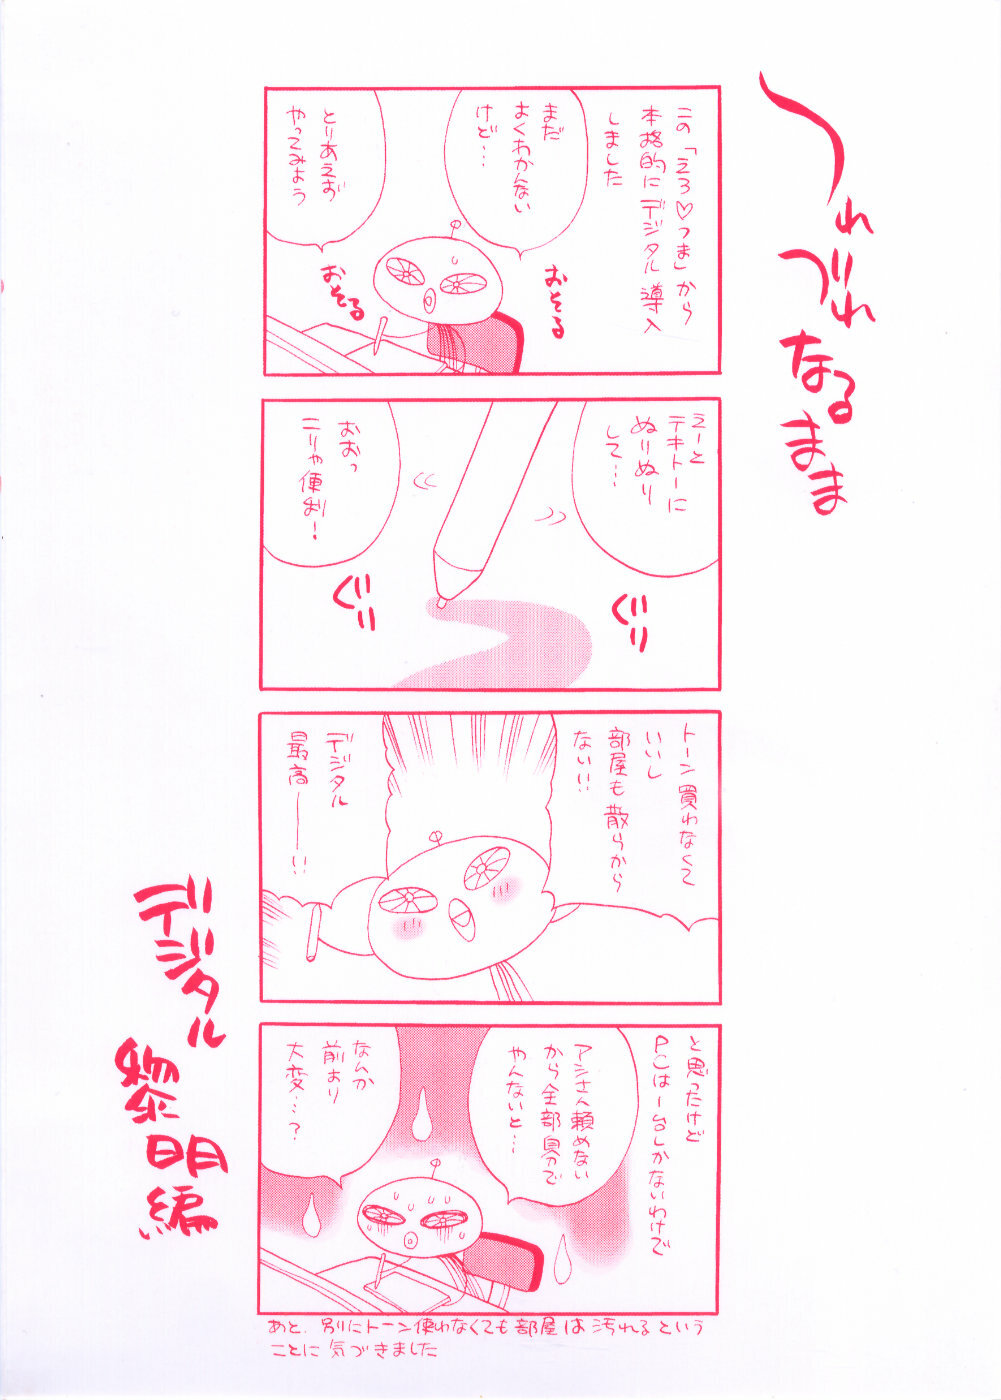 つれづれ
なるまま
この「えろ♡つま」から
本格的にデジタル導入
しました
まだ
よくわかんない
けど…
とりあえず
やってみよう
おそる
おそる
えーと
テキトーに
ぬりぬり
して…
おおっ
こりゃ便利！
ぐりり
ぐりり
トーン買わなくて
いいし
部屋も散らから
ない…
デジタル
最高――い
と思ったけど
PCは一台しかないわけで
アシさん頼めない
から全部自分で
やんないと…
なんか
前より
大変…？
あと、別にトーン使わなくても部屋は汚れるという
ことに気づきました
デジタル
黎明編